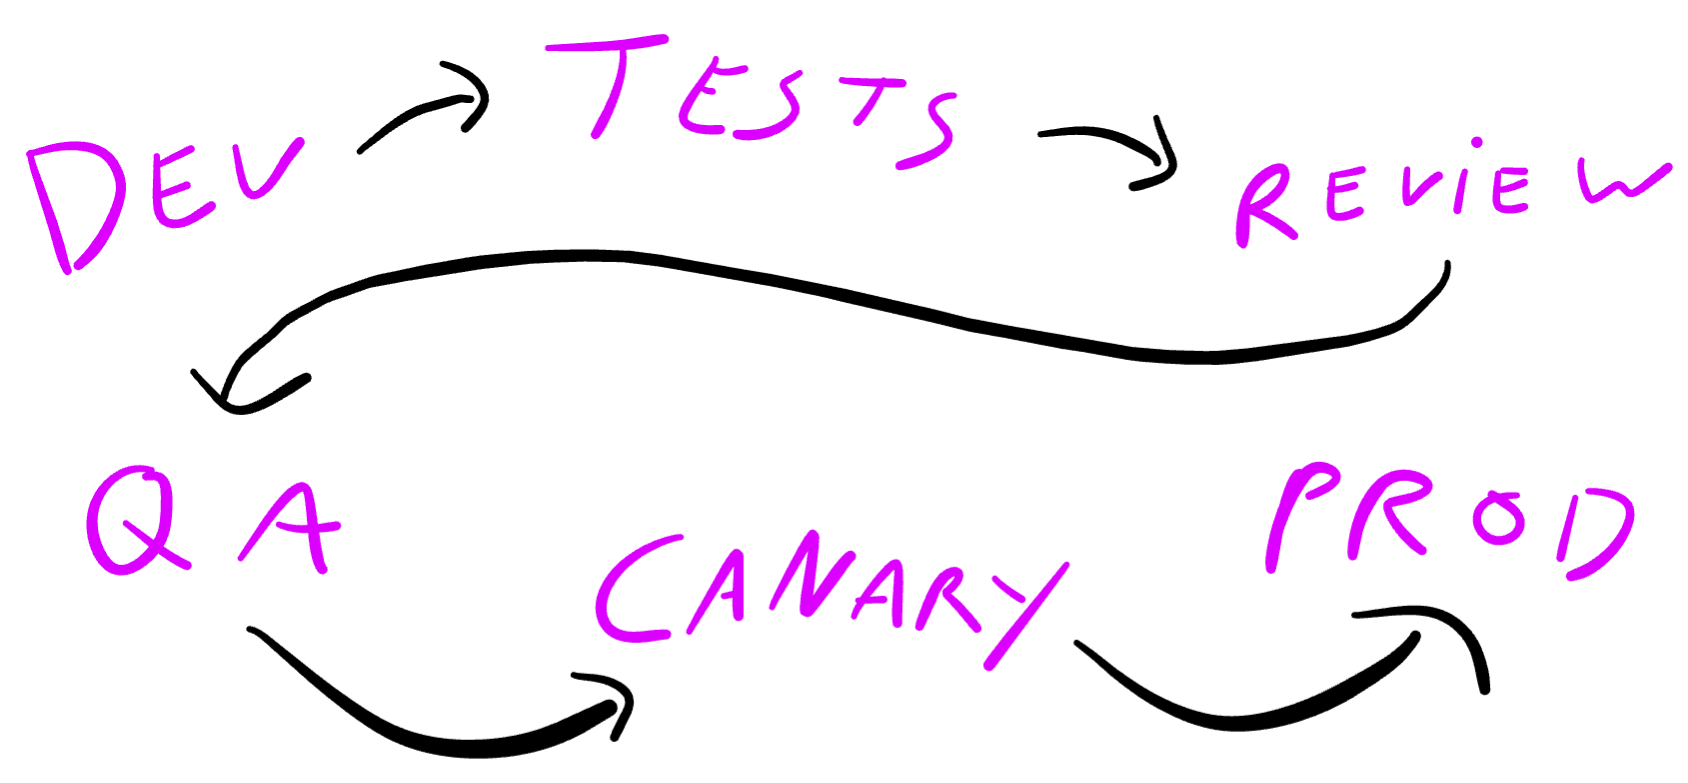 DEV TESTS REVIEW
QA CANARY PROD